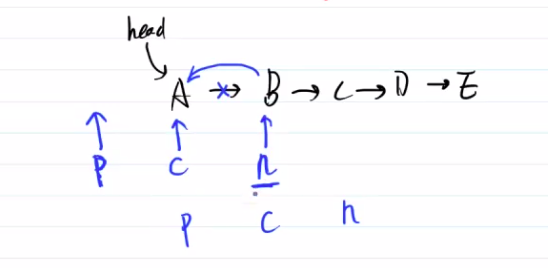 head
A → B → C → D → E
p c n
p c n